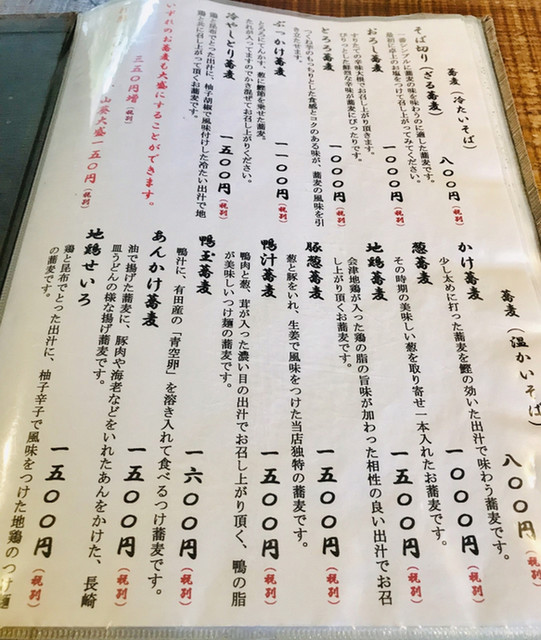 蕎麦(冷たいそば)
そば切り(ざる蕎麦) 八〇〇円(税別)
一番シンプルに蕎麦の味を味わうのに適した蕎麦です。
最初に卓上のお塩をつけて召し上がってみてください。
おろし蕎麦 一〇〇〇円(税別)
すりたての辛味大根でお召し上り頂きます。
ぴりっとした鮮烈な辛味が蕎麦にぴったりです。
とろろ蕎麦 一〇〇〇円(税別)
つくね芋のもっちりとした食感とコクのある味が、蕎麦の風味を引
き立たせます。
ぶっかけ蕎麦 一一〇〇円(税別)
とろろにてんかす、葱に鰹節を乗せた蕎麦。
たれが入ってますのでかき混ぜてお召し上がりください。
冷やしとり蕎麦 一五〇〇円(税別)
鶏と昆布でとった出汁に、柚子胡椒で風味付けした冷たい出汁で地
鶏と共に召し上がって頂くお蕎麦です。
いずれのお蕎麦も大盛にすることができます。
三五〇円増(税別)
山葵大盛一五〇円(税別)
蕎麦(温かいそば)
かけ蕎麦 八〇〇円(税別)
少し太めに打った蕎麦を鰹の効いた出汁で味わう蕎麦です。
葱蕎麦 一〇〇〇円(税別)
その時期の美味しい葱を取り寄せ一本入れたお蕎麦です。
地鶏蕎麦 一五〇〇円(税別)
会津地鶏が入った鶏の脂の旨味が加わった相性の良い出汁でお召
し上がり頂くお蕎麦です。
豚葱蕎麦 一五〇〇円(税別)
葱と豚をいれ、生姜で風味をつけた当店独特の蕎麦です。
鴨汁蕎麦 一五〇〇円(税別)
鴨肉と葱、茸が入った濃い目の出汁でお召し上がり頂く、鴨の脂
が美味しいつけ麺の蕎麦です。
鴨玉蕎麦 一六〇〇円(税別)
鴨汁に、有田産の「青空卵」を溶き入れて食べるつけ蕎麦です。
あんかけ蕎麦 一五〇〇円(税別)
油で揚げた蕎麦に、豚肉や海老などをいれたあんをかけた、長崎
皿うどんの様な揚げ蕎麦です。
地鶏せいろ 一五〇〇円(税別)
鶏と昆布でとった出汁に、柚子辛子で風味をつけた地鶏のつけ麺
の蕎麦です。